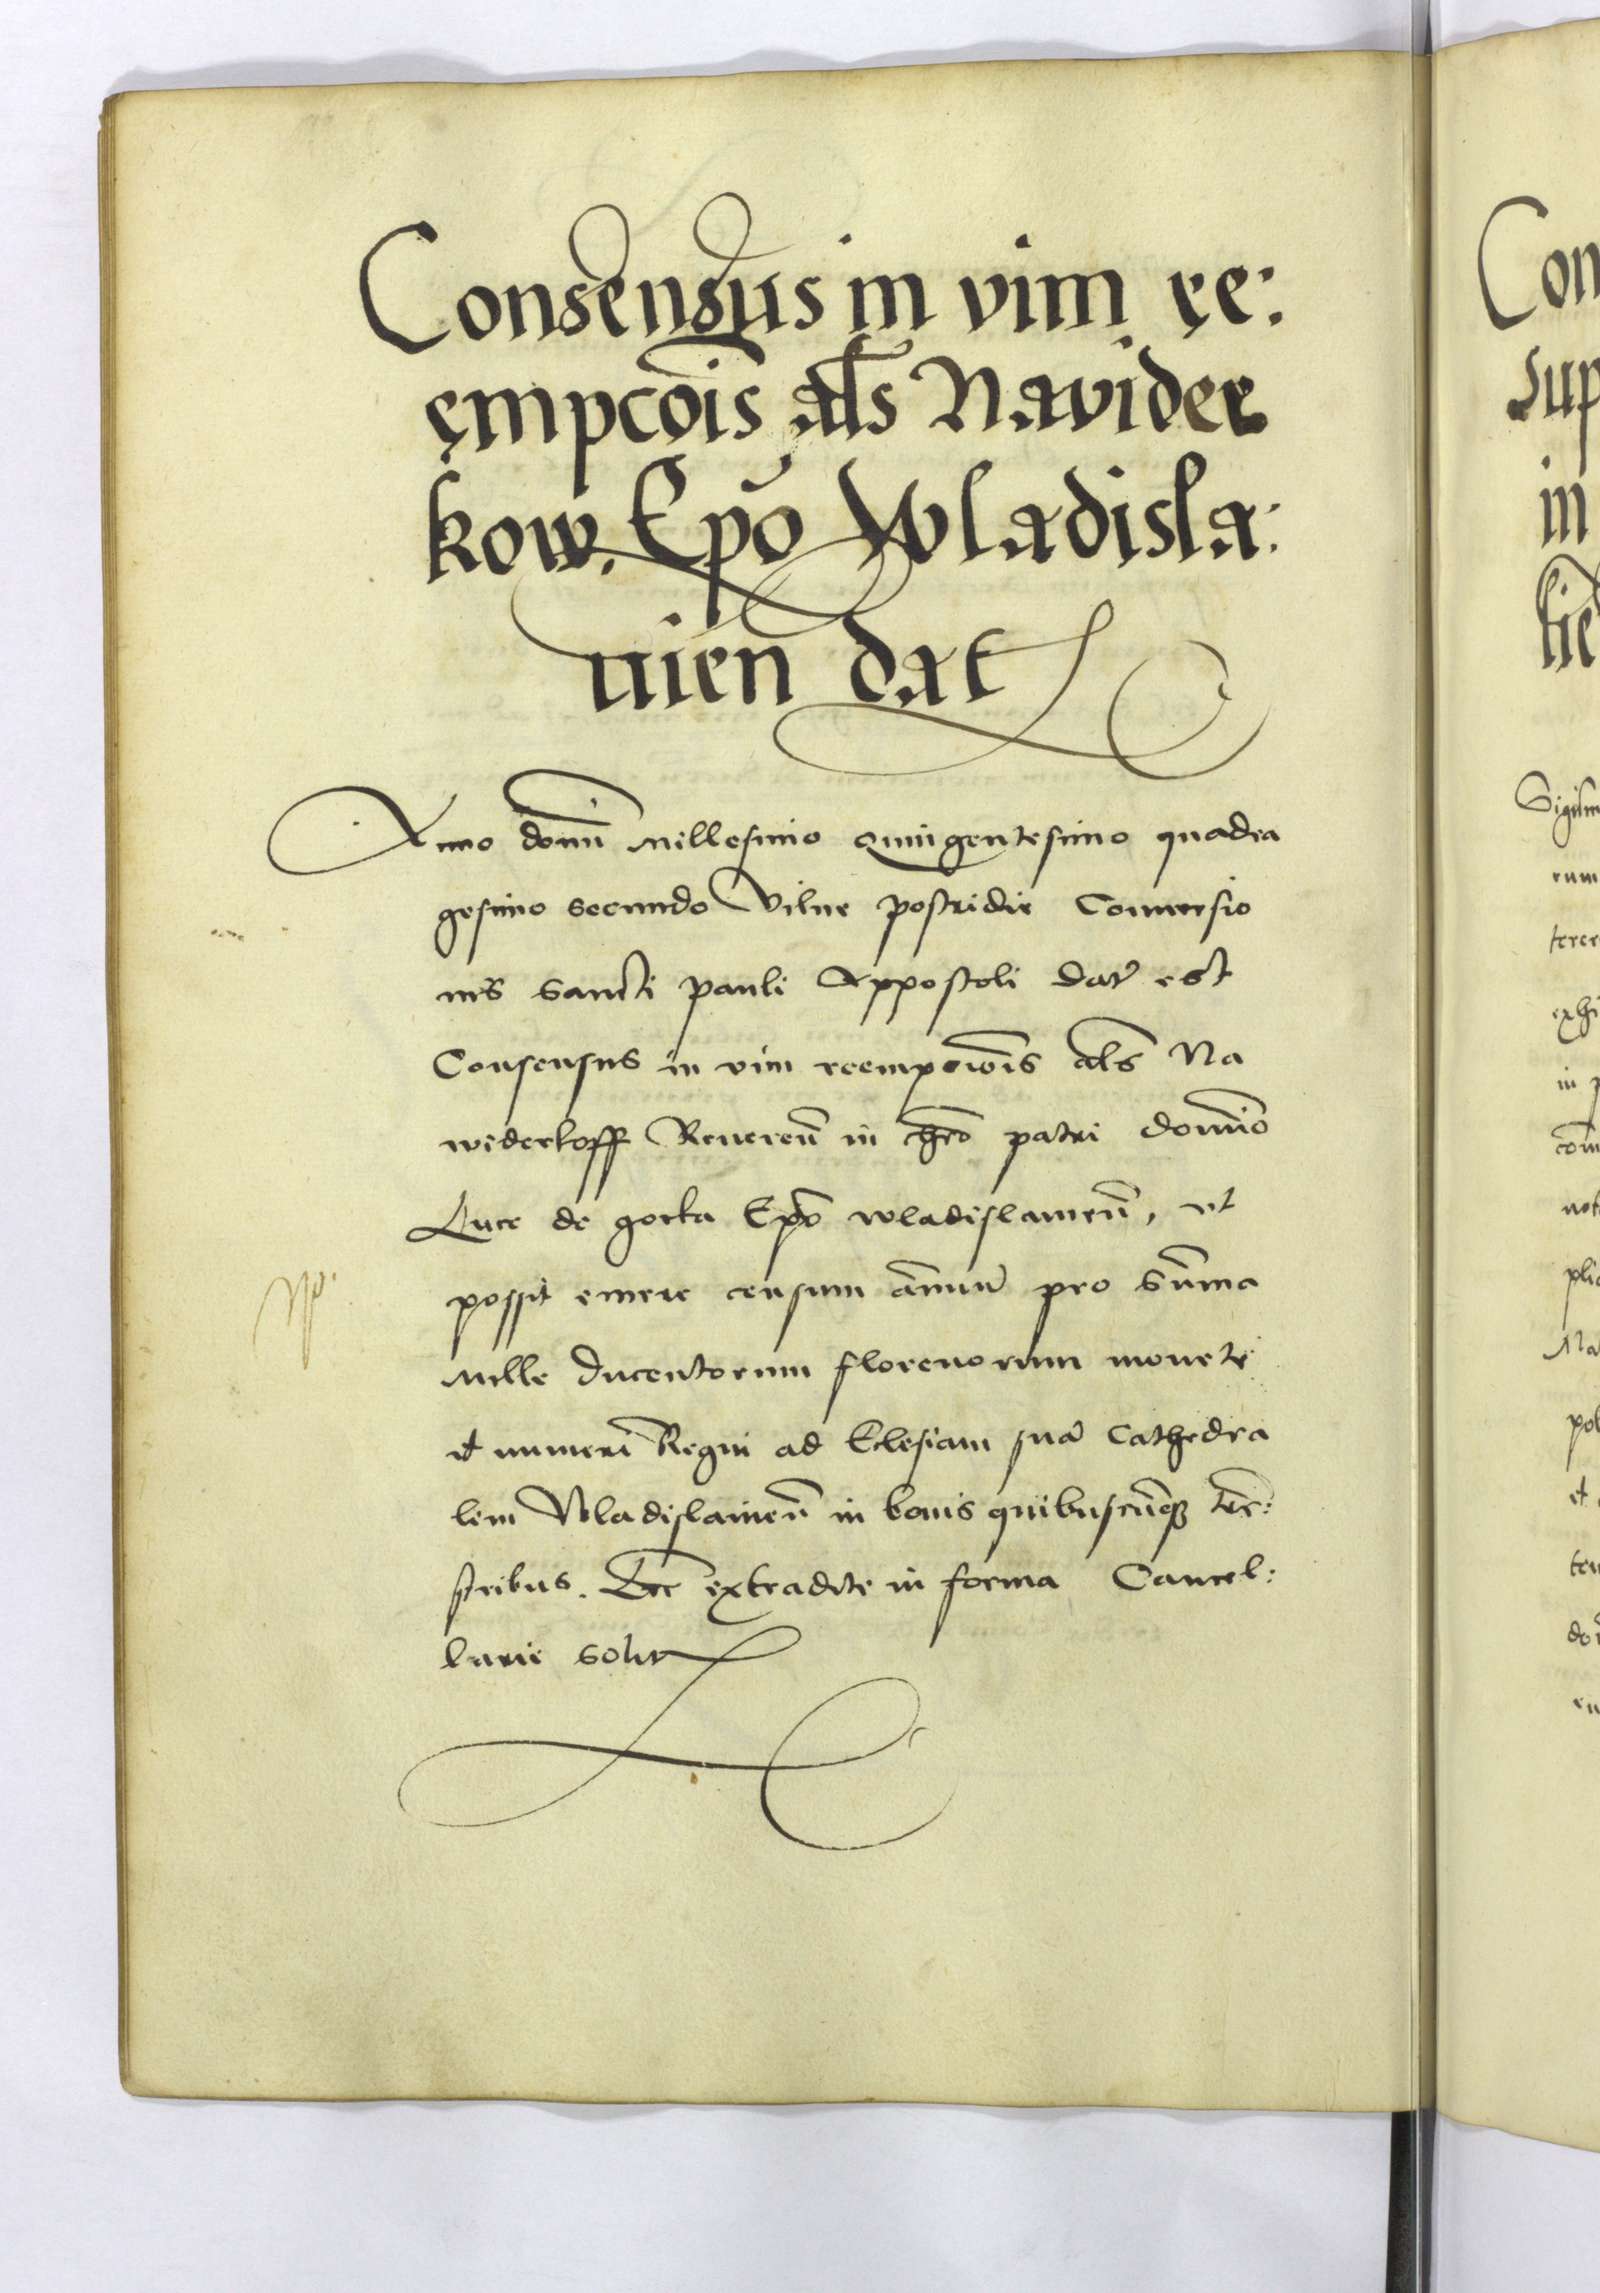 Consensus in vim re:
empcōis als Navider
kow. Epō Wladisla:
uien dat
Anno domī Millesimo quingentesimo quadra
gesimo secundo Vilne postridie Conuersio
nis sancti pauli Appostoli dat est
Consensus in vim reempcioīs als Na
widerkoff Reueren̄ in chrō patri domīo
Luce de gorka Epō wladislauien̄, vt
possit emere censum annuū pro summa
mille ducentorum florenorum monete
et numeri Regni ad Eclesiam suā Cathedra
lem Wladislauien̄ in bonis quibuscūqȝ ter:
stribus. Lre extradite in forma Cancel:
larie solit
Con
sup
in
Sigism
rum
in
com
not
plic
Na
pol
et